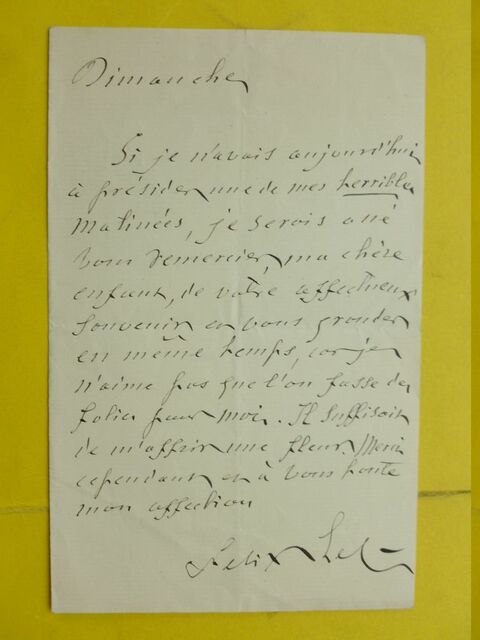 Dimanche
Si je n'avais aujourd'hui
à présider une de mes terribles
matinées, je serais allé
vous remercier, ma chère
enfant, de votre affectueux
souvenir et vous gronder
en même temps, car je
n'aime pas que l'on fasse de
folies pour moi. Il suffisait
de m'offrir une fleur. Merci
cependant et à vous toute
mon affection
Felix